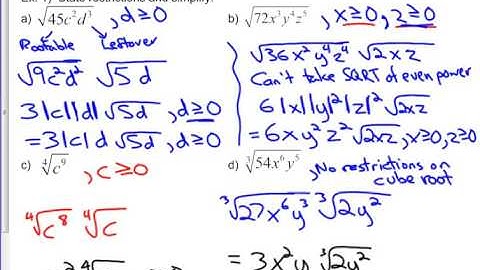 Ex. 1) State restrictions and simplify:
a) √45c²d³ , d≥0
Rootable Leftover
√9c²d² √5d
3|c||d|√5d , d≥0
= 3|c|d√5d , d≥0
b) √72x³y⁴z⁵ , x≥0, z≥0
√36x²y⁴z⁴ √2xz
Can't take SQRT of even power
6|x||y|²|z|²√2xz
= 6xy²z²√2xz , x≥0, z≥0
c) ∜c⁹ , c≥0
∜c⁸ ∜c
d) ∛54x⁶y⁵ , No restrictions on
cube root
∛27x⁶y³ ∛2y²
= 3x²y ∛2y²